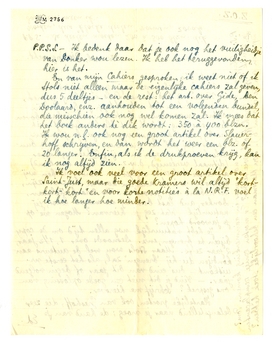 2756
P.P.S.2 - Ik bedenk daar dat je ook nog het vuiligheidje
van Donker wou lezen. Ik heb het teruggevonden,
hier is het.
En van mijn Cahiers gesproken, ik weet niet of ik
Stols niet alleen maar de eigenlijke cahiers zal geven,
dus 5 deeltjes - en de rest: het art. over Gide, den
Doolaard, enz. aanhouden tot een volgenden bundel,
die misschien ook nog wel komen zal. Ik vrees dat
het boek anders te dik wordt: 350 à 400 blzn.
Ik wou n.l. ook nog een groot artikel over Slauer-
hoff schrijven, en dan wordt het weer blz. of
20 langer. Enfin, als ik de drukproeven krijg, kan
ik nog altijd zien.
Ik voel ook veel voor een groot artikel over
Saint-Just, maar die goede Kramers wil altijd "kort-
kort-kort" en voor korte notities à la N.R.F. voel
ik hoe langer hoe minder.